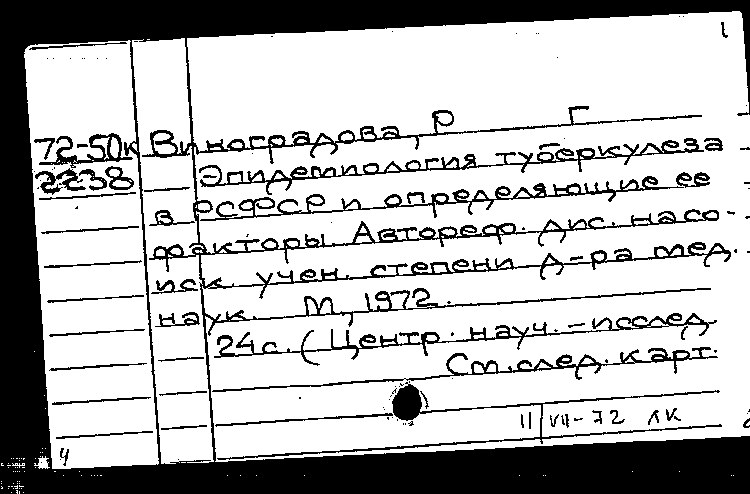 1
72-50к Виноградова, Р Г
2238 Эпидемиология туберкулеза
в РСФСР и определяющие ее
факторы. Автореф. дис. на со-
иск. учен. степени д-ра мед.
наук. М., 1972.
24 с. (Центр. науч.-исслед.
См. след. карт.
11/VII-72 ЛК
4